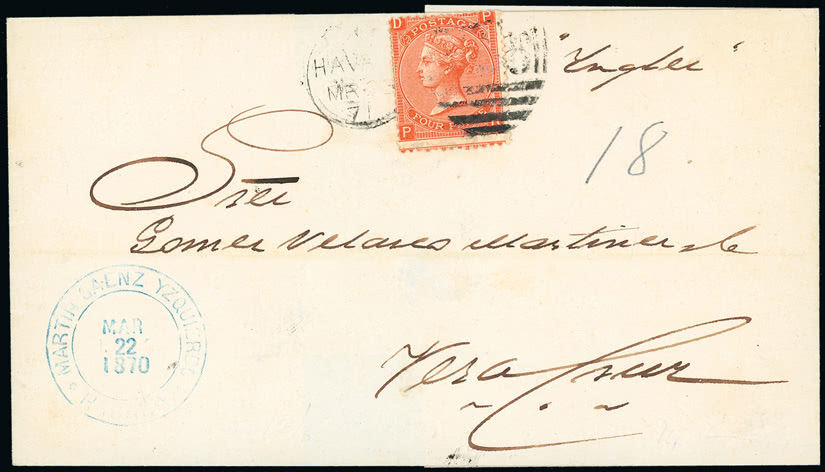 D P
POSTAGE
FOUR
P
HAVA
MA
71
"Ingles"
18.
Sres
Gomez Velasco Martinez y Ca
Vera Cruz
MARTIN SAENZ YZQUIERDO
MAR
22
1870